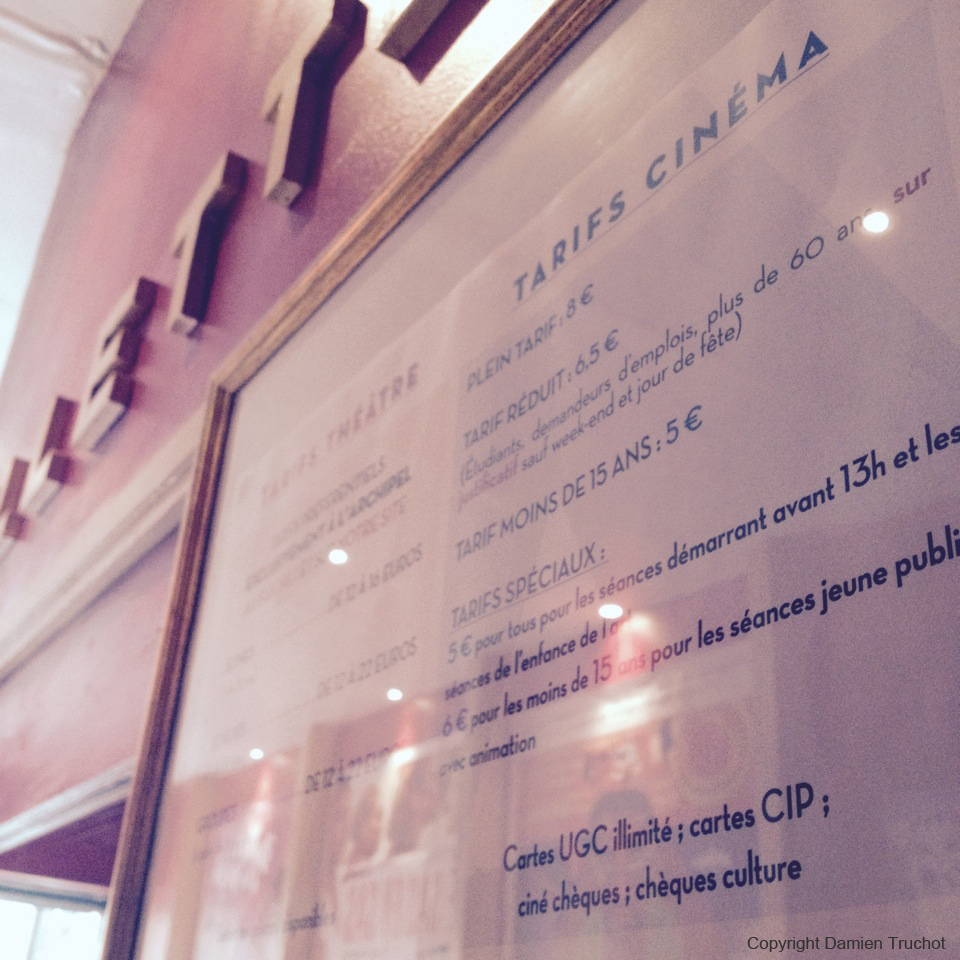 TARIFS CINÉMA
PLEIN TARIF : 8 €
TARIF RÉDUIT : 6,5 €
(Étudiants, demandeurs d'emplois, plus de 60 ans sur
justificatif sauf week-end et jour de fête)
TARIF MOINS DE 15 ANS : 5 €
TARIFS SPÉCIAUX :
5 € pour tous pour les séances démarrant avant 13h et les
séances de l'enfance de l'art
6 € pour les moins de 15 ans pour les séances jeune publi
avec animation
Cartes UGC illimité ; cartes CIP ;
ciné chèques ; chèques culture
TARIFS THÉATRE
À L'ARCHIPEL
DE 12 À 16 EUROS
DE 12 À 22 EUROS
DE 12 À 22 EUROS
Copyright Damien Truchot